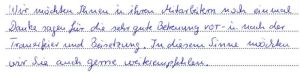 Wir möchten Ihnen u. Ihren Mitarbeitern noch einmal
Danke sagen für die sehr gute Betreuung vor- u. nach der
Transfer und Besetzung. In diesem Sinne möchten
wir Sie auch gerne weiterempfehlen.